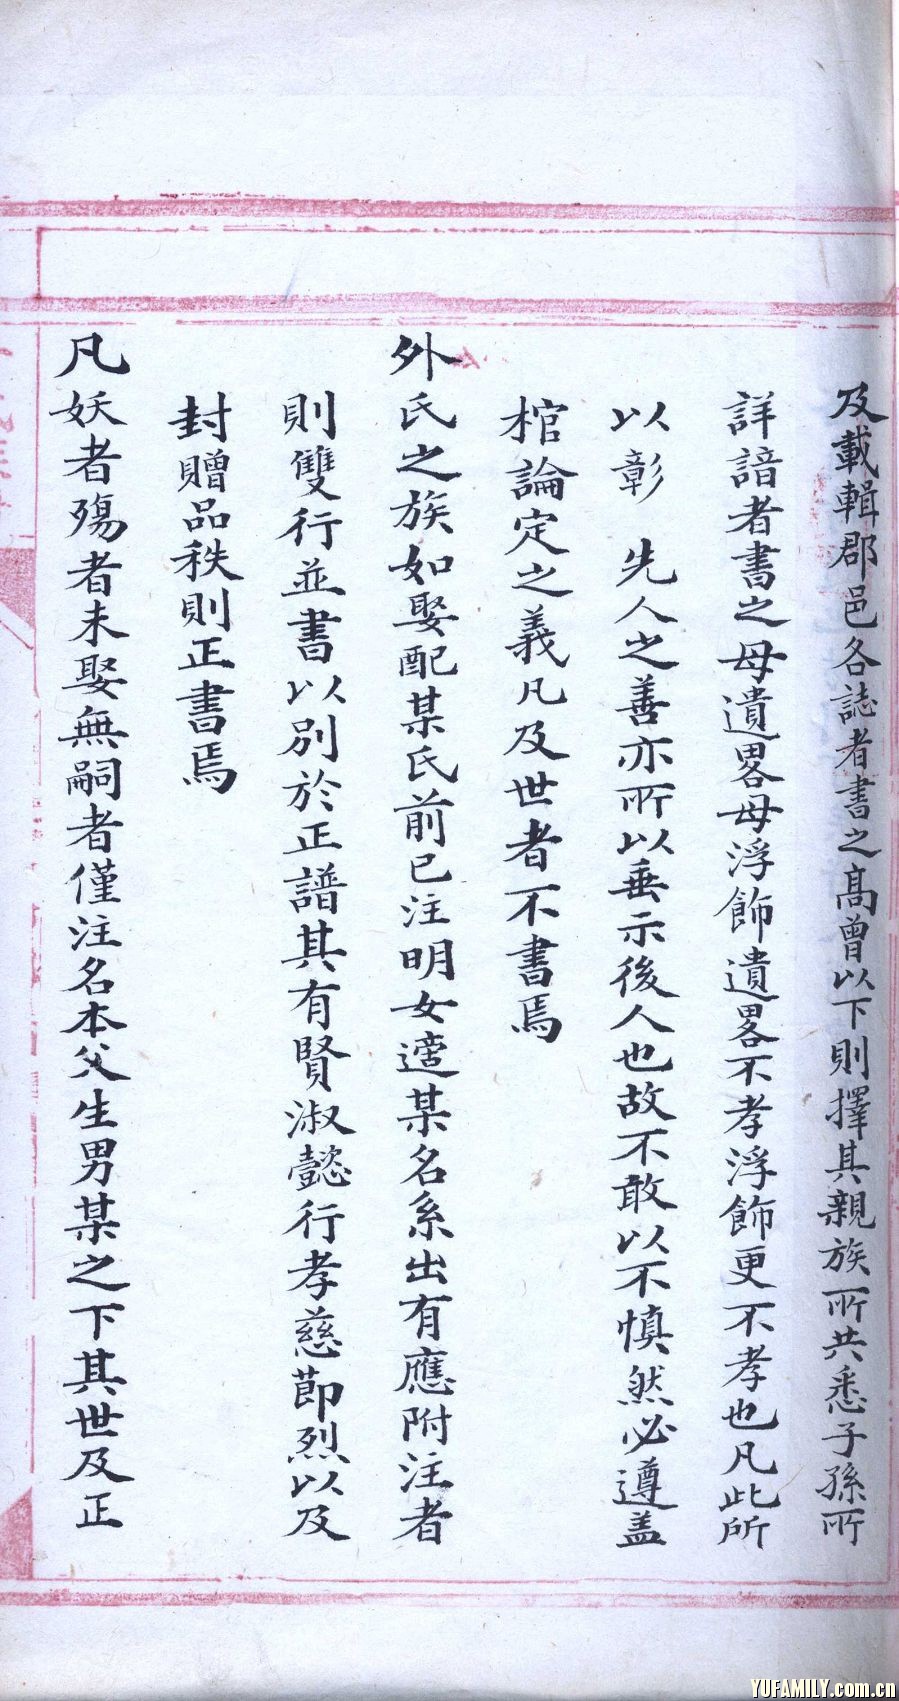 及載輯郡邑各誌者書之高曾以下則擇其親族所共悉子孫所
詳諳者書之毋遺畧毋浮飾遺畧不孝浮飾更不孝也凡此所
以彰　先人之善亦所以垂示後人也故不敢以不慎然必遵蓋
棺論定之義凡及世者不書焉
外氏之族如娶配某氏前已注明女適某名系出有應附注者
則雙行並書以別於正譜其有賢淑懿行孝慈節烈以及
封贈品秩則正書焉
凡妖者殤者未娶無嗣者僅注名本父生男某之下其世及正
YUFAMILY.com.cn